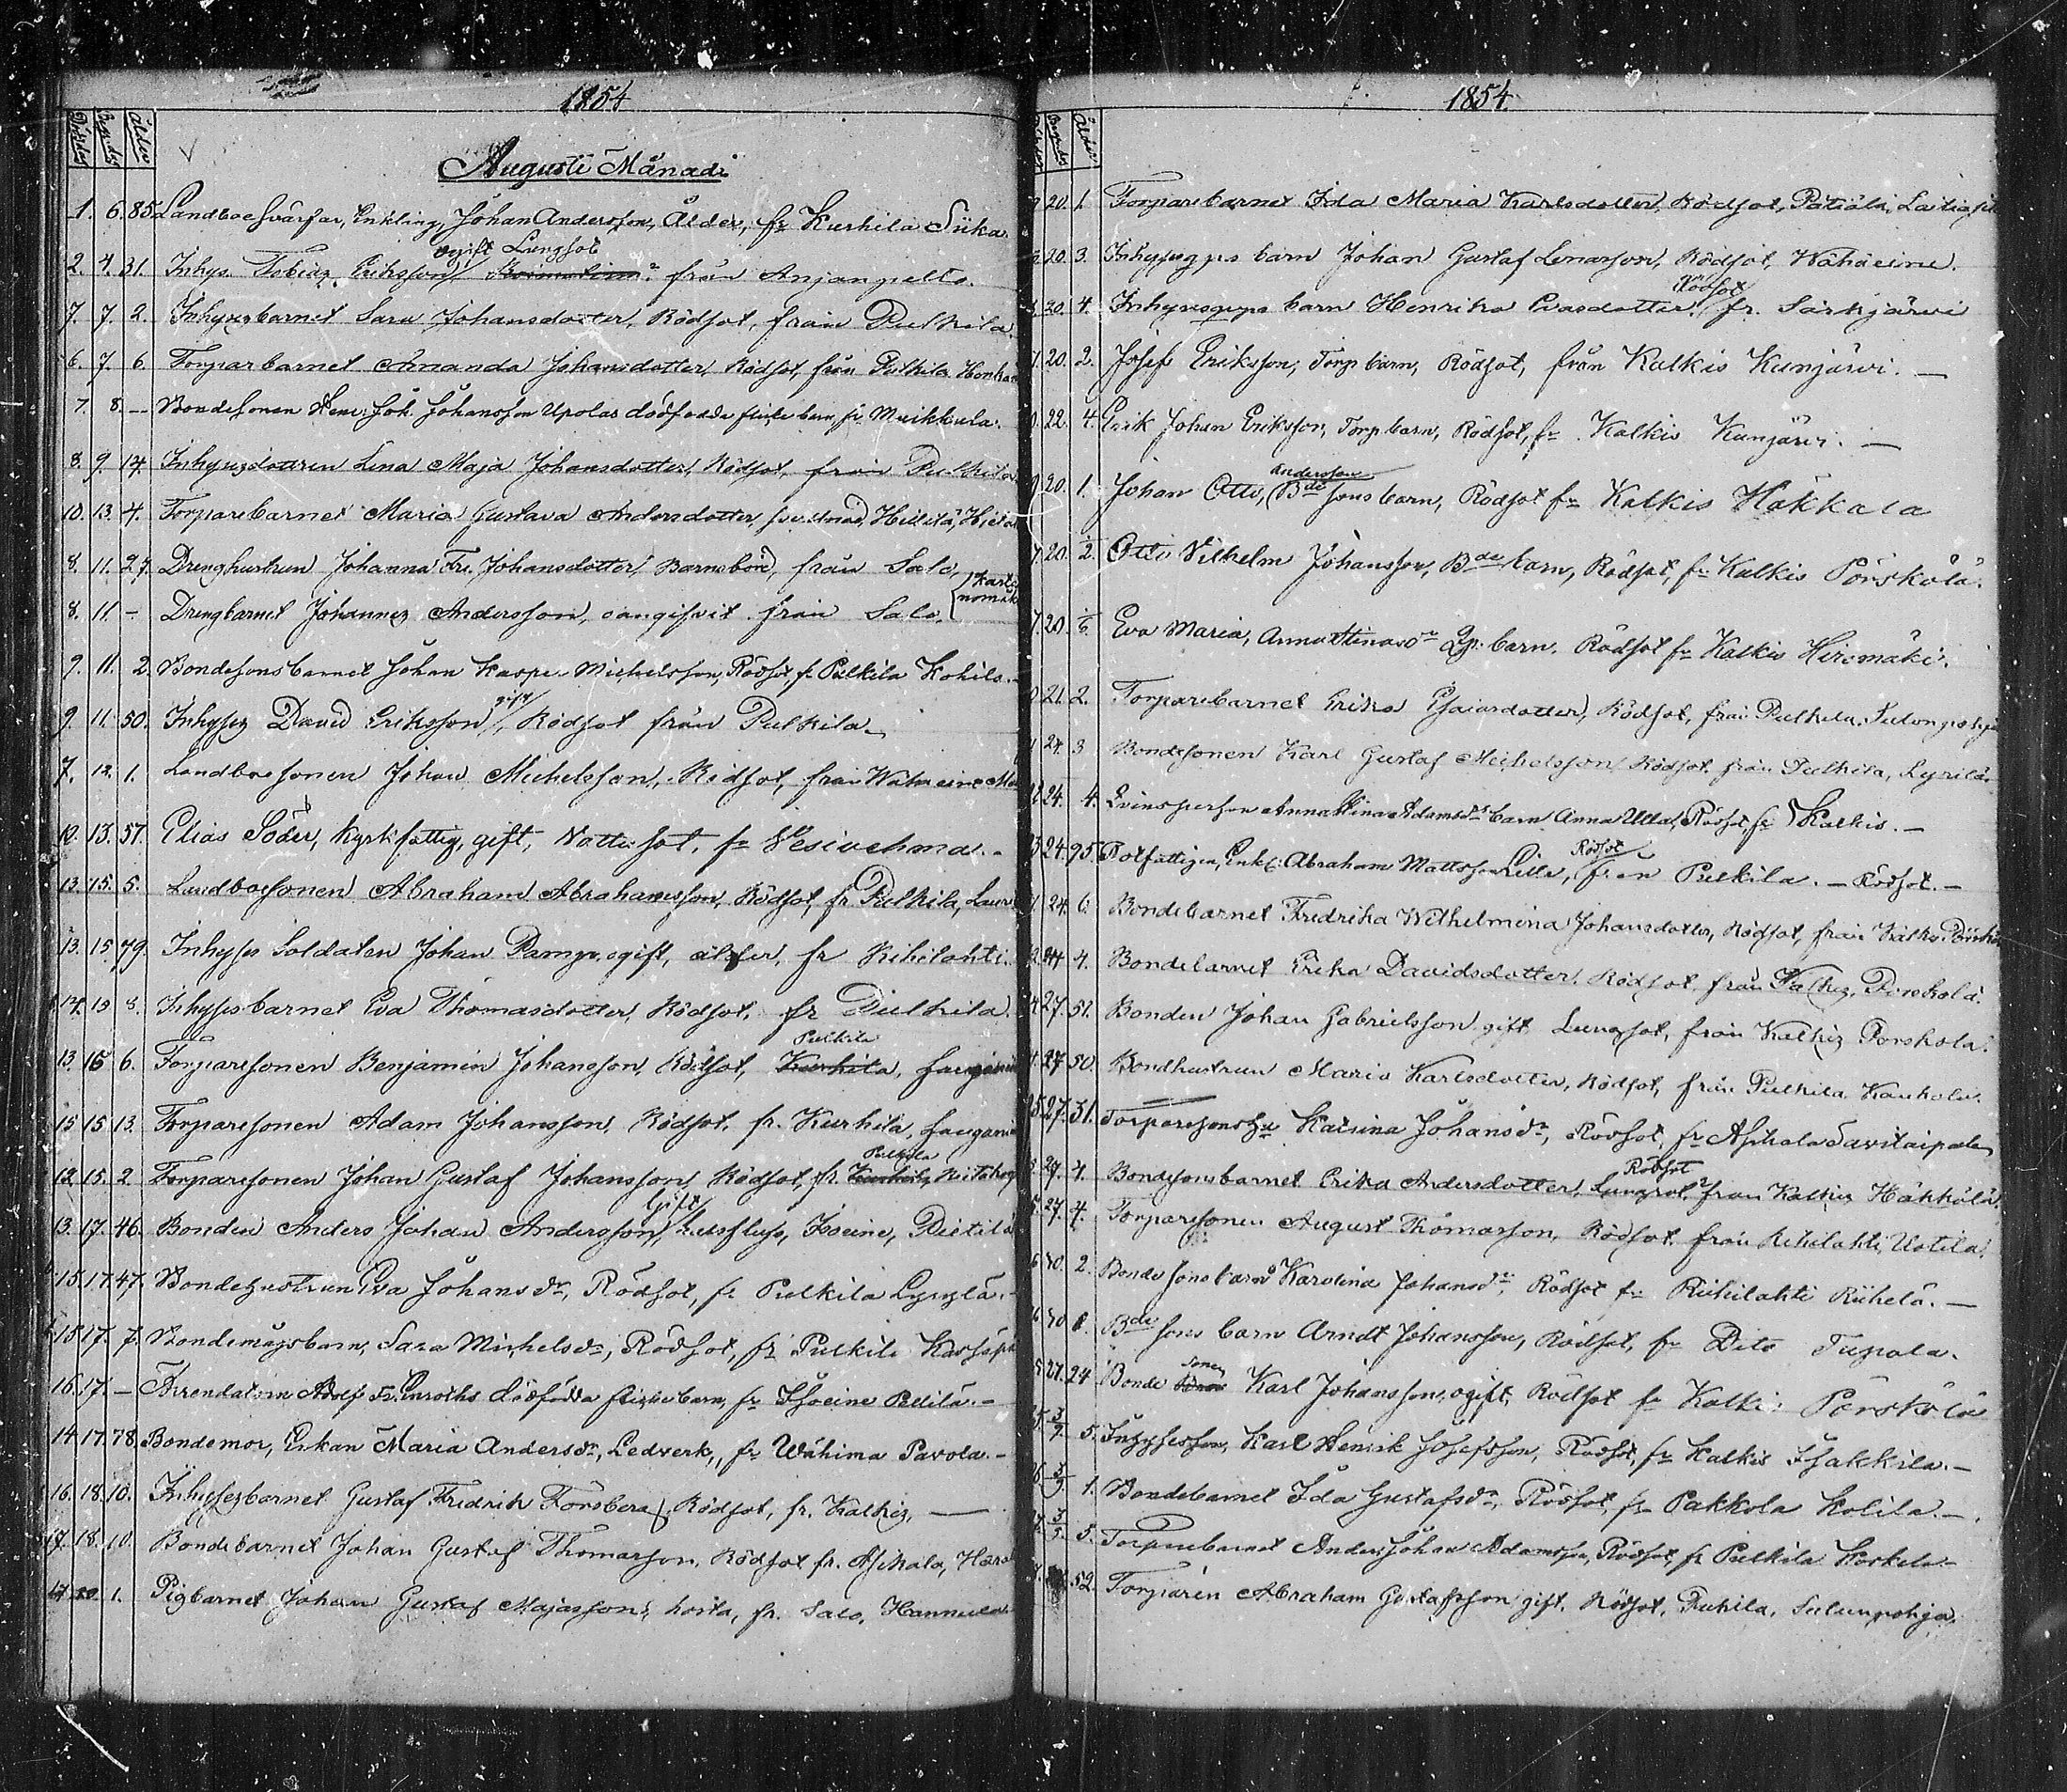 1854
Ålder
Augusti Månad
1. 6. 85 Landboe svärfar, Enkling, Johan Andersson, Ålder, fr Kurhila Siika
ogift Lungsot
2. 4. 31. Inhys. Tobias Eriksson, från Anjanpelto.
7. 7. 2. Inhyses barnet Sara Johansdotter, Rödsot, från Pulkila
6. 7. 6. Torparbarnet Amanda Johansdotter, Rödsot, från Pulkila Honka
7. 8. — Bondesonen Henr. Joh. Johansson Upolas dödfödda flicke barn, fr Muikkula.
8. 9. 14 Inhysesdottren Lena Maja Johansdotter, Rödsot, från Pulkila
10. 13. 4. Torparebarnet Maria Gustava Andersdotter, Hillilä,
8. 11. 27. Drenghustrun Johanna Fre. Johansdotter, Barnsbörd, från Salo,
8. 11. - Drengbarnet Johannes Andersson, oangifvit från Salo,
9. 11. 2. Bondesons barnet Johan Kasper Michelsson, Rödsot, fr Pulkila Kohila.-
gift
9. 11. 50. Inhyses David Eriksson, Rödsot från Pulkila.
7. 12. 1. Landboesonen Johan Michelsson, Rödsot, från
10. 13. 57. Elias Söder, Kyrkfattig, gift, Vattusot, fr Vesivehma.-
13. 15. 5. Landboesonen Abraham Abrahamsson, Rödsot, fr Pulkila, Laur
13. 15. 79. Inhyses Soldaten Johan Damp, ogift, ålder, fr Rihilahti.
14. 15 8. Inhyses barnet Eva Thomasdotter, Rödsot, fr Pulkila
Pulkila
13. 15 6. Torparesonen Benjamin Johansson, Rödsot, Kurhila,
15 15 13. Torparesonen Adam Johansson, Rödsot, fr. Kurhila,
Pulkila
12. 15. 2 Torparesonen Johan Gustaf Johansson, Rödsot, fr. Kurhila
Gift
13. 17. 46. Bonden Anders Johan Andersson, Isoeine, Pietilä
15. 17. 47. Bondehustrun Eva Johansdr, Rödsot, fr Pulkila
15 17. 7. Bondemågsbarn, Sara Michelsdr, Rödsot, fr Pulkila
16. 17. — Arrendatorn Adolf Fr. Enroths dödfödda flicke barn, fr Isoeine Pellilä.-
14. 17. 78. Bondemor, Enkan Maria Andersdr, Ledverk, fr Wähima Pavola.-
16. 18. 10. Inhysesbarnet Gustaf Fredrik Forsberg, Rödsot, fr. Kalkis, —
17. 18. 10. Bondebarnet Johan Gustaf Thomasson, Rödsot fr. Asikala,
1. Pigbarnet Johan Gustaf Majasson, hosta, fr. Salo, Hannula
1854
Ålder
20. 1. Torparebarnet Ida Maria Karlsdotter, Rödsot, Pätiälä,
20. 3. barn Johan Gustaf Lenasson, Rödsot, Wähäeine.
Rödsot
20. 4. barn Henrika Evasdotter, fr. Särkjärvi
20. 2. Josef Eriksson, Torp barn, Rödsot, från Kalkis Kumjärvi. —
22. 4. Erik Johan Eriksson, Torp barn, Rödsot, fr Kalkis Kumjärvi. —
Andersson
20. 1. Johan Otto, Bde sons barn, Rödsot fr Kalkis Häkkälä
20. 2. Otto Vilhelm Johansson, Bde barn, Rödsot, fr Kalkis Pörskölä.
20. Eva Maria, barn, Rödsot fr Kalkis Hiromäki.
21. 2. Torparebarnet Erika Esaiasdotter, Rödsot, från Pulkila,
24. 3 Bondesonen Karl Gustaf Michelsson Rödsot från Pulkila,
24. 4. Qvinsperson Anna Stina Adamsdr barn Anna Ulla, Rödsot, fr Kalkis. —
Rödsot
24. 95. Rotfattigen, Enkl: Abraham Mattsson Lilla, från Pulkila. — Rödsot. —
24. 6. Bondebarnet Fredrika Wilhelmina Johansdotter, Rödsot, från Kalkis Pörskö
24 4. Bondebarnet Erika Davidsdotter, Rödsot, från Kalkis, Pörskölä.
27. 51. Bonden Johan Gabrielsson gift Lungsot, från Kalkis Pörskölä.
27 50. Bondhustrun Maria Karlsdotter, Rödsot, från Pulkila
25. 27. 31. Torparesonshu Katrina Johansdr, Rödsot, fr Asikala Savitaipale
Rödsot
27. 4. Bondesonsbarnet Erika Andersdotter, Lungsot, från Kalkis Häkkälä.
27. 4. Torparesonen August Thomasson, Rödsot från Rihilahti, Uotila.
30. 2. Bonde sons barn Karolina Johansdr, Rödsot fr Rihilahti Riihelä. —
30 Bde sons barn Arndt Johansson, Rödsot, fr Dito Tupala.
sonen
27. 24 Bonde Karl Johansson, ogift, Rödsot fr Kalkis Pörskölä
3/9 5. Inhysesson, Karl Henrik Josefsson, Rödsot, fr Kalkis Isakkila. —
3/9 1. Bondebarnet Ida Gustafsdr, Rödsot, fr Pakkola Kolila. —
3/9. 5. Torparebarnet Anders Johan Adamsson, Rödsot, fr Pulkila Koskela —
52. Torparen Abraham Gustafsson gift, Rödsot, Pulkila, Sulunpohja.